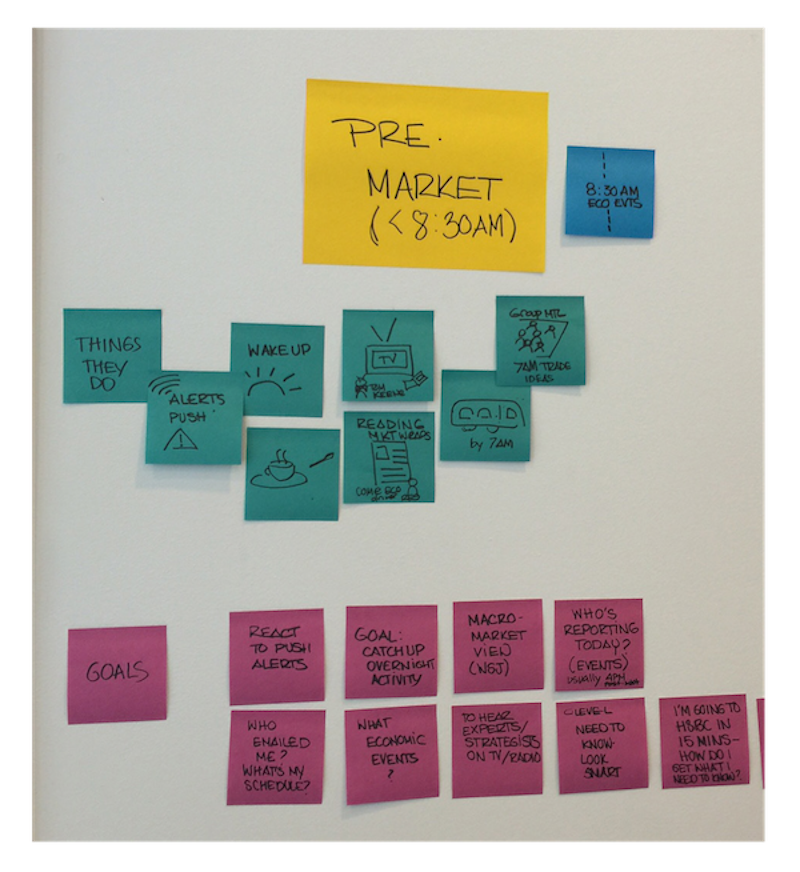 PRE-
MARKET
(< 8:30AM)
8:30AM
ECO EVTS
THINGS
THEY
DO
ALERTS
PUSH
WAKE UP
TV
TOM
KEENE
READING
MKT WRAPS
SOME ECO
by 7AM
Group MTG
7AM TRADE
IDEAS
GOALS
REACT
TO PUSH
ALERTS
GOAL:
CATCH UP
OVERNIGHT
ACTIVITY
MACRO-
MARKET
VIEW
WHO'S
REPORTING
TODAY?
(EVENTS)
usually 4PM
WHO
EMAILED
ME?
WHAT'S MY
SCHEDULE?
WHAT
ECONOMIC
EVENTS
?
TO HEAR
EXPERTS/
STRATEGISTS
ON TV/RADIO
C-LEVEL
NEED TO
KNOW-
LOOK
SMART
I'M GOING TO
HSBC IN
15 MINS—
HOW DO I
GET WHAT I
NEED TO KNOW?